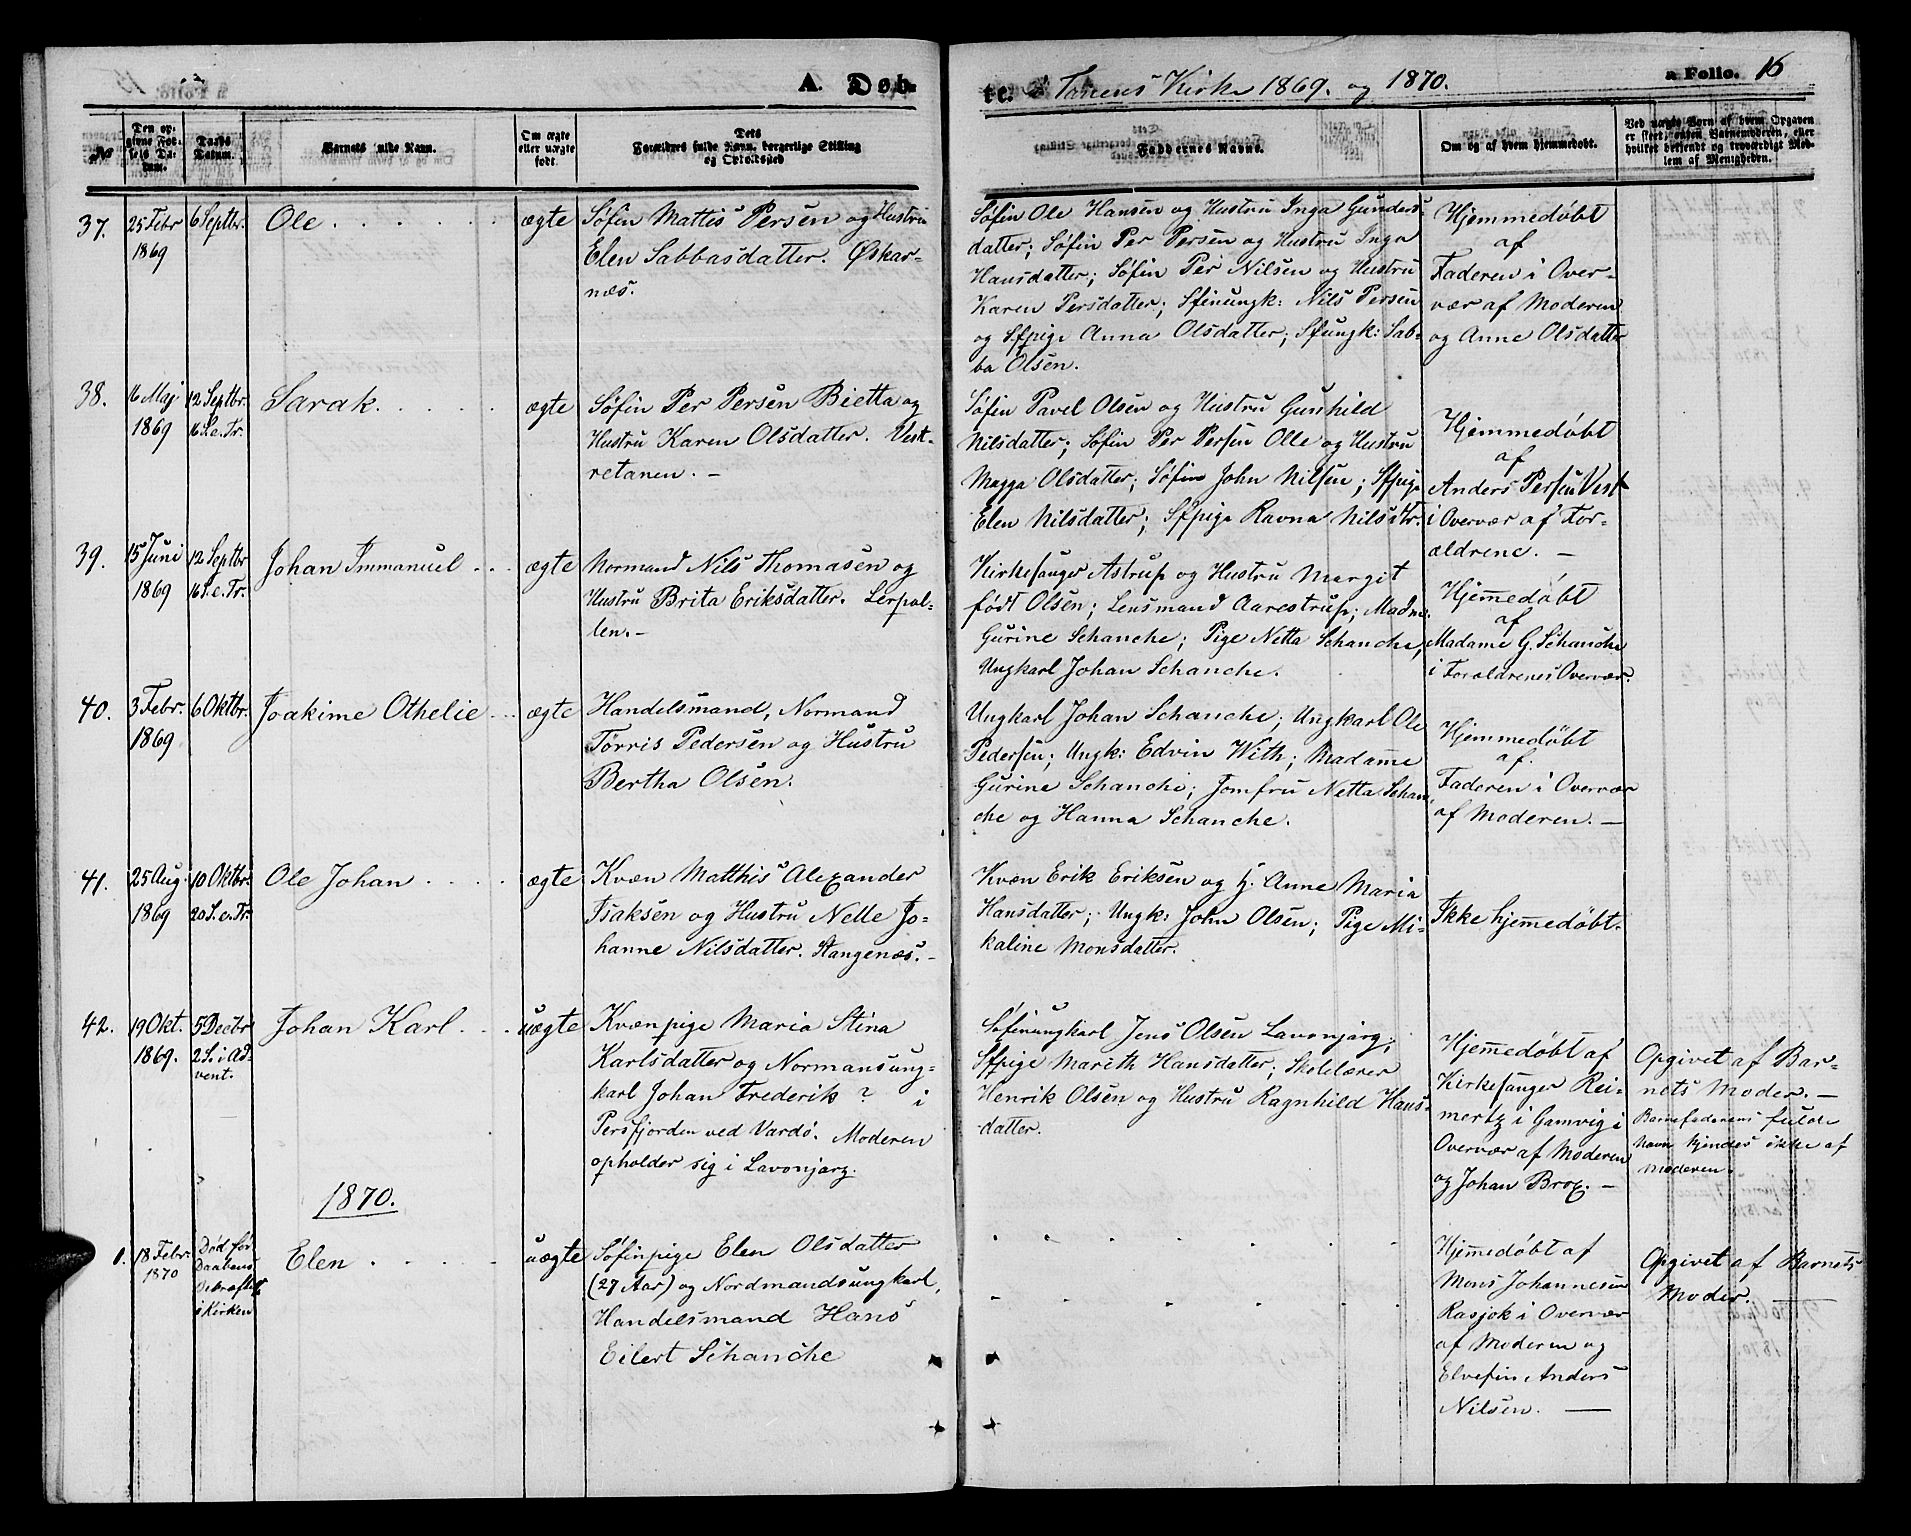 A. Døb-
te. i Tanens Kirke 1869. og 1870.
a Folio. 16
No
Den op-
givne Fød-
sels Da-
tum.
Daabs
Datum.
Barnets fulde Navn.
Om ægte
eller uægte
født.
Dets
Forældres fulde Navn, borgerlige Stilling
og Opholdssted
Faddernes Navne.
Om og af hvem hjemmedøbt.
Ved uægte Børn af hvem Opgaven
er skeet, enten Barnemoderen, eller
hvilket bekjendt og troværdigt Med-
lem af Menigheden.
37.
25 Febr
1869
6 Septbr.
Ole
ægte
Søfin Mattis Persen og Hustru
Elen Sabbasdatter. Øskar-
næs.
Søfin Ole Hansen og Hustru Inga Gunders-
datter; Søfin Per Persen og Hustru Inga
Hansdatter; Søfin Per Nilsen og Hustru
Karen Persdatter; Sfinungk: Nils Persen
og Sfpige Anna Olsdatter; Sfungk: Sab-
ba Olsen.
Hjemmedøbt
af
Faderen i Over-
vær af Moderen
og Anne Olsdatter
38.
16 Maj
1869
12 Septbr.
16 S. e. Tr.
Sarak
ægte
Søfin Per Persen Bietta og
Hustru Karen Olsdatter. Vest-
retanen. -
Søfin Pavel Olsen og Hustru Gunhild
Nilsdatter; Søfin Per Persen Olle og Hustru
Magga Olsdatter; Søfin John Nilsen; Sfpige
Elen Nilsdatter; Sfpige Ravna Nilsdtr.
Hjemmedøbt
af
Anders Persen Vest
i Overvær af For-
ældrene. -
39.
15 Juni
1869
12 Septbr
16 S. e. Tr.
Johan Immanuel
ægte
Normand Nils Thomasen og
Hustru Brita Eriksdatter. Lerpol-
len. -
Kirkesanger Astrup og Hustru Margit
født Olsen; Lensmand Aarestrup; Madm.
Gurine Schanche; Pige Netta Schanche,
Ungkarl Johan Schanche.
Hjemmedøbt
af
Madame G. Schanche
i Forældrenes Overvær.
40.
3 Febr.
1869
6 Oktbr.
Joakime Othelie
ægte
Handelsmand, Normand
Tørris Pedersen og Hustru
Bertha Olsen.
Ungkarl Johan Schanche; Ungkarl Ole
Pedersen; Ungk: Edvin With; Madame
Gurine Schanche; Jomfru Netta Schan-
che og Hanna Schanche.
Hjemmedøbt
af.
Faderen i Overvær
af Moderen. -
41.
25 Aug.
1869
10 Oktbr.
20 S. e. Tr.
Ole Johan
ægte
Kvæn Matthis Alexander
Isaksen og Hustru Nelle Jo-
hanne Nilsdatter. Stangenæs. -
Kvæn Erik Eriksen og H. Anne Maria
Hansdatter; Ungk: John Olsen; Pige Mi-
kaline Monsdatter.
Ikke hjemedøbt.
42.
19 Okt.
1869.
5 Decbr
2 S. i Ad-
vent.
Johan Karl
uægte
Kvænpige Maria Stina
Karlsdatter og Normansung-
karl Johan Frederik ? i
Persfjorden ved Vardø. Moderen
opholder sig i Lavonjarg.
Søfinungkarl Jens Olsen Lavonjarg;
Sfpige Mareth Hansdatter; Skolelærer
Henrik Olsen og Hustru Ragnhild Hans-
datter.
Hjemedøbt af
Kirkesanger Rei-
mertz i Gamvig i
Overvær af Moderen
og Johan Brox. -
Opgivet af Bar-
nets Moder. -
Barnefaderens fulde
Navn kjendes ikke af
Moderen.
1870.
1.
18 Febr.
1870
Død før
Daabens
Bekræftelse
i Kirken
Elen
uægte
Søfinpige Elen Olsdatter
(27 Aar) og Nordmandsungkarl,
Handelsmand Hans
Eilert Schanche
Hjemedøbt af
Mons Johannesen
Rasjok i Overvær
af Moderen og
Elvefin Anders
Nilsen. -
Opgivet af Barnets
Moder.